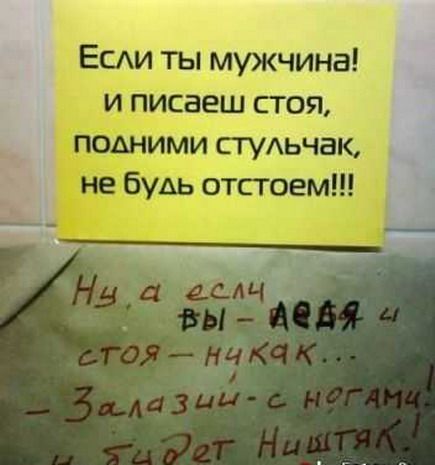 Если ты мужчина!
и писаеш стоя,
подними стульчак,
не будь отстоем!!!
Ну, а если
вы - ледя и
стоя - никак...
- Залазий - с ногами!
и будет Ништяк!